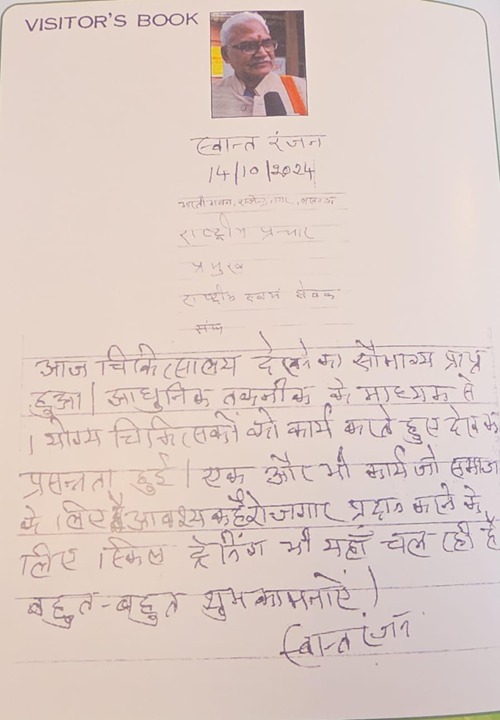 VISITOR'S BOOK
स्वान्त रंजन
14/10/2024
भारती भवन, राजेन्द्र नगर,
राष्ट्रीय प्रचार
प्रमुख
राष्ट्रीय स्वयं सेवक
संघ
आज चिकित्सालय देखने का सौभाग्य प्राप्त
हुआ। आधुनिक तकनीक के माध्यम से
। योग्य चिकित्सकों को कार्य करते हुए देख कर
प्रसन्नता हुई। एक और भी कार्य जो समाज
के लिए है आवश्यक है रोजगार प्रदान करने के
लिए स्किल ट्रेनिंग भी यहाँ चल रही है
बहुत-बहुत शुभकामनाएँ।
स्वान्त रंजन